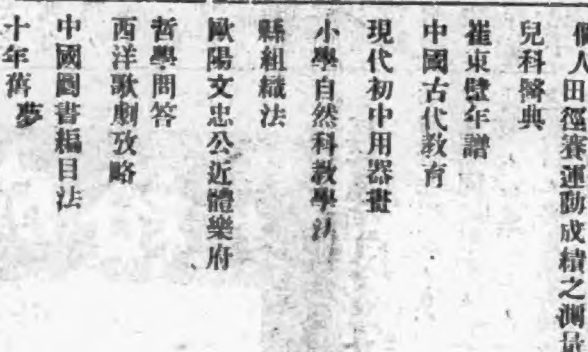 個人田徑賽運動成績之測量
兒科醫典
崔東壁年譜
中國古代教育
現代初中用器畫
小學自然科教學法
縣組織法
歐陽文忠公近體樂府
哲學問答
西洋歌劇攷略
中國圖書編目法
十年舊夢